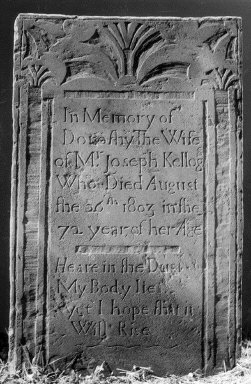 In Memory of
Dorothy The Wife
of Mr. Joseph Kellog
Who Died August
the 26th 1803 in the
72 year of her Age
Heare in the Dust
My Body lies
yet I hope that it
Will Rise